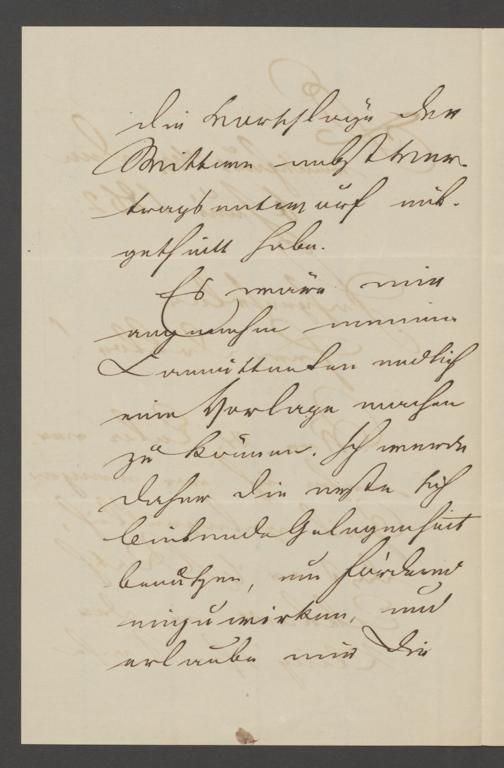 die Vorschläge der
Wittwe nebst Ver-
tragsentwurf mit-
getheilt habe.
Es wäre mir
angenehm meinen
Committenten endlich
eine Vorlage machen
zu können. Ich werde
daher die erste sich
bietende Gelegenheit
benützen, um fördernd
einzuwirken, und
erlaube mir Die